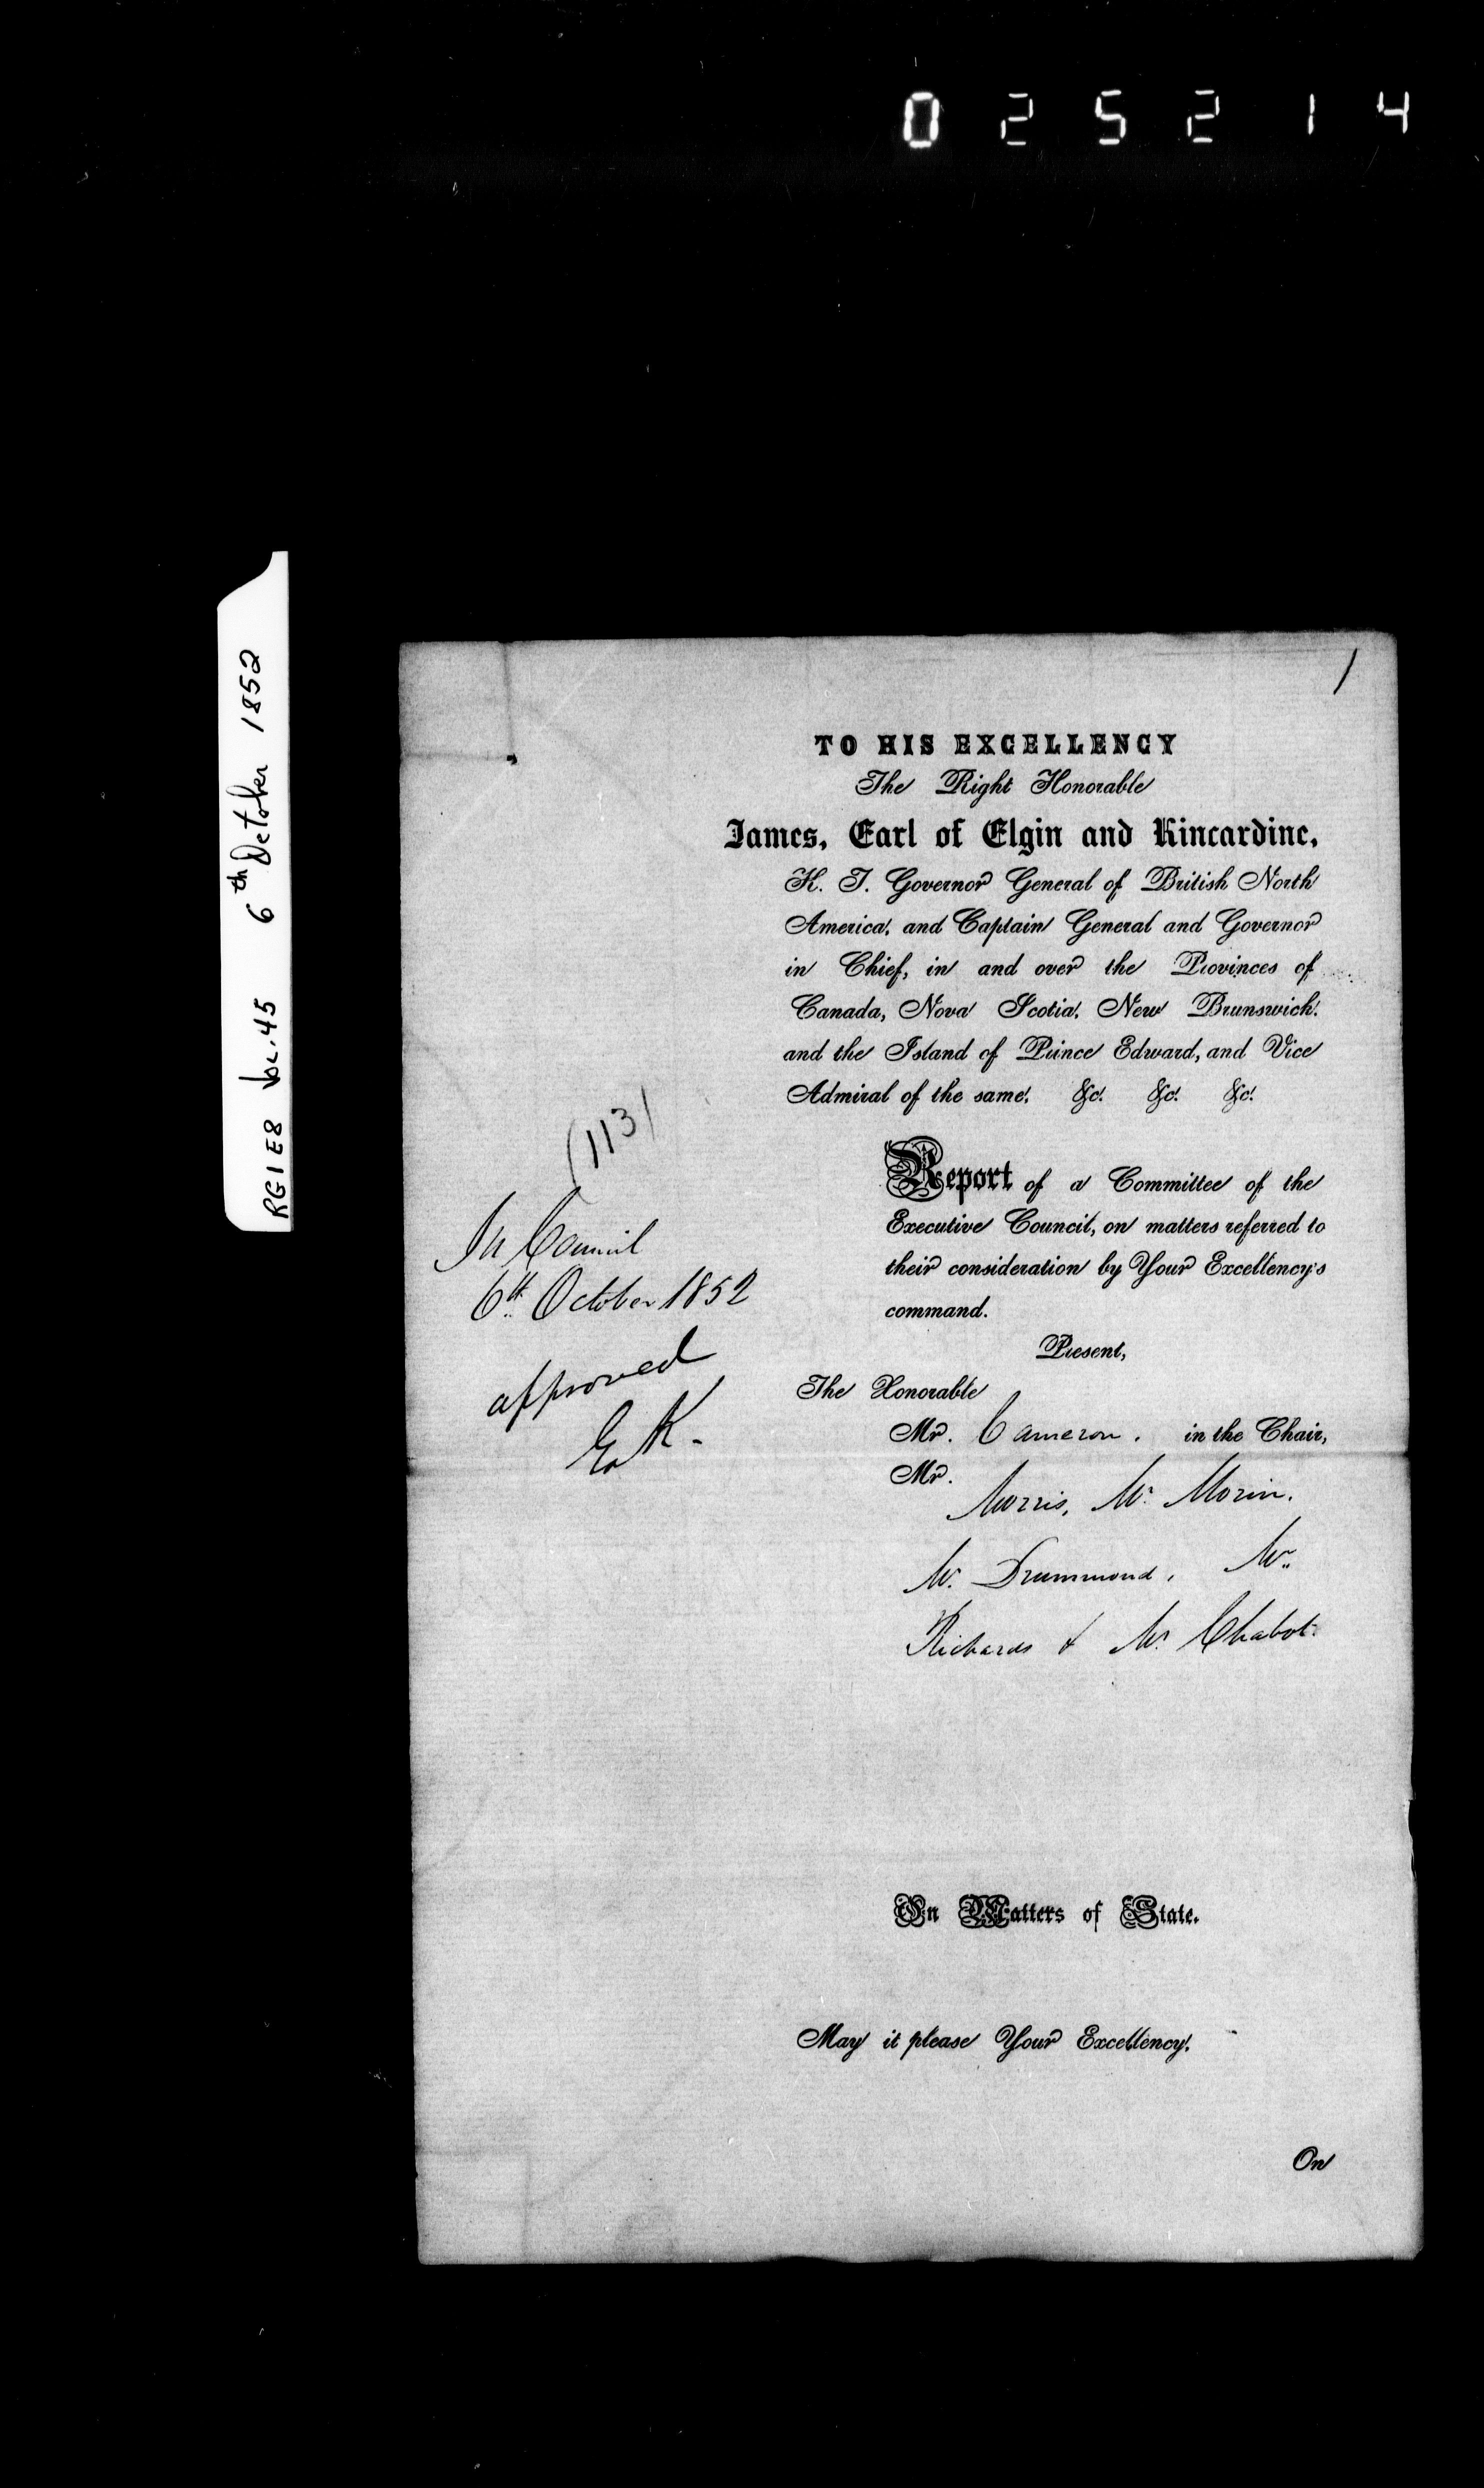 025214
RG1E8 Vol.45 6th October 1852
1
TO HIS EXCELLENCY
The Right Honorable
James, Earl of Elgin and Kincardine,
K. T. Governor General of British North
America, and Captain General and Governor
in Chief, in and over the Provinces of
Canada, Nova Scotia, New Brunswick,
and the Island of Prince Edward, and Vice
Admiral of the same, &c. &c. &c.
(113)
In Council
6th October 1852
approved
E K.
Report of a Committee of the
Executive Council, on matters referred to
their consideration by Your Excellency's
command.
Present,
The Honorable
Mr. Cameron. in the Chair,
Mr.
Morris, Mr. Morin.
Mr. Drummond, Mr.
Richards & Mr. Chabot.
On Matters of State.
May it please Your Excellency,
On